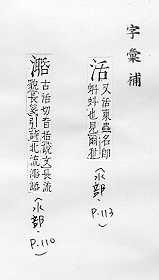 字彙補
活
又活東蟲名即
蝌蚪也見爾雅
(水部,
P.113)
古活切音括說文長流
貌長箋引詩北流
(水部,
P.110)